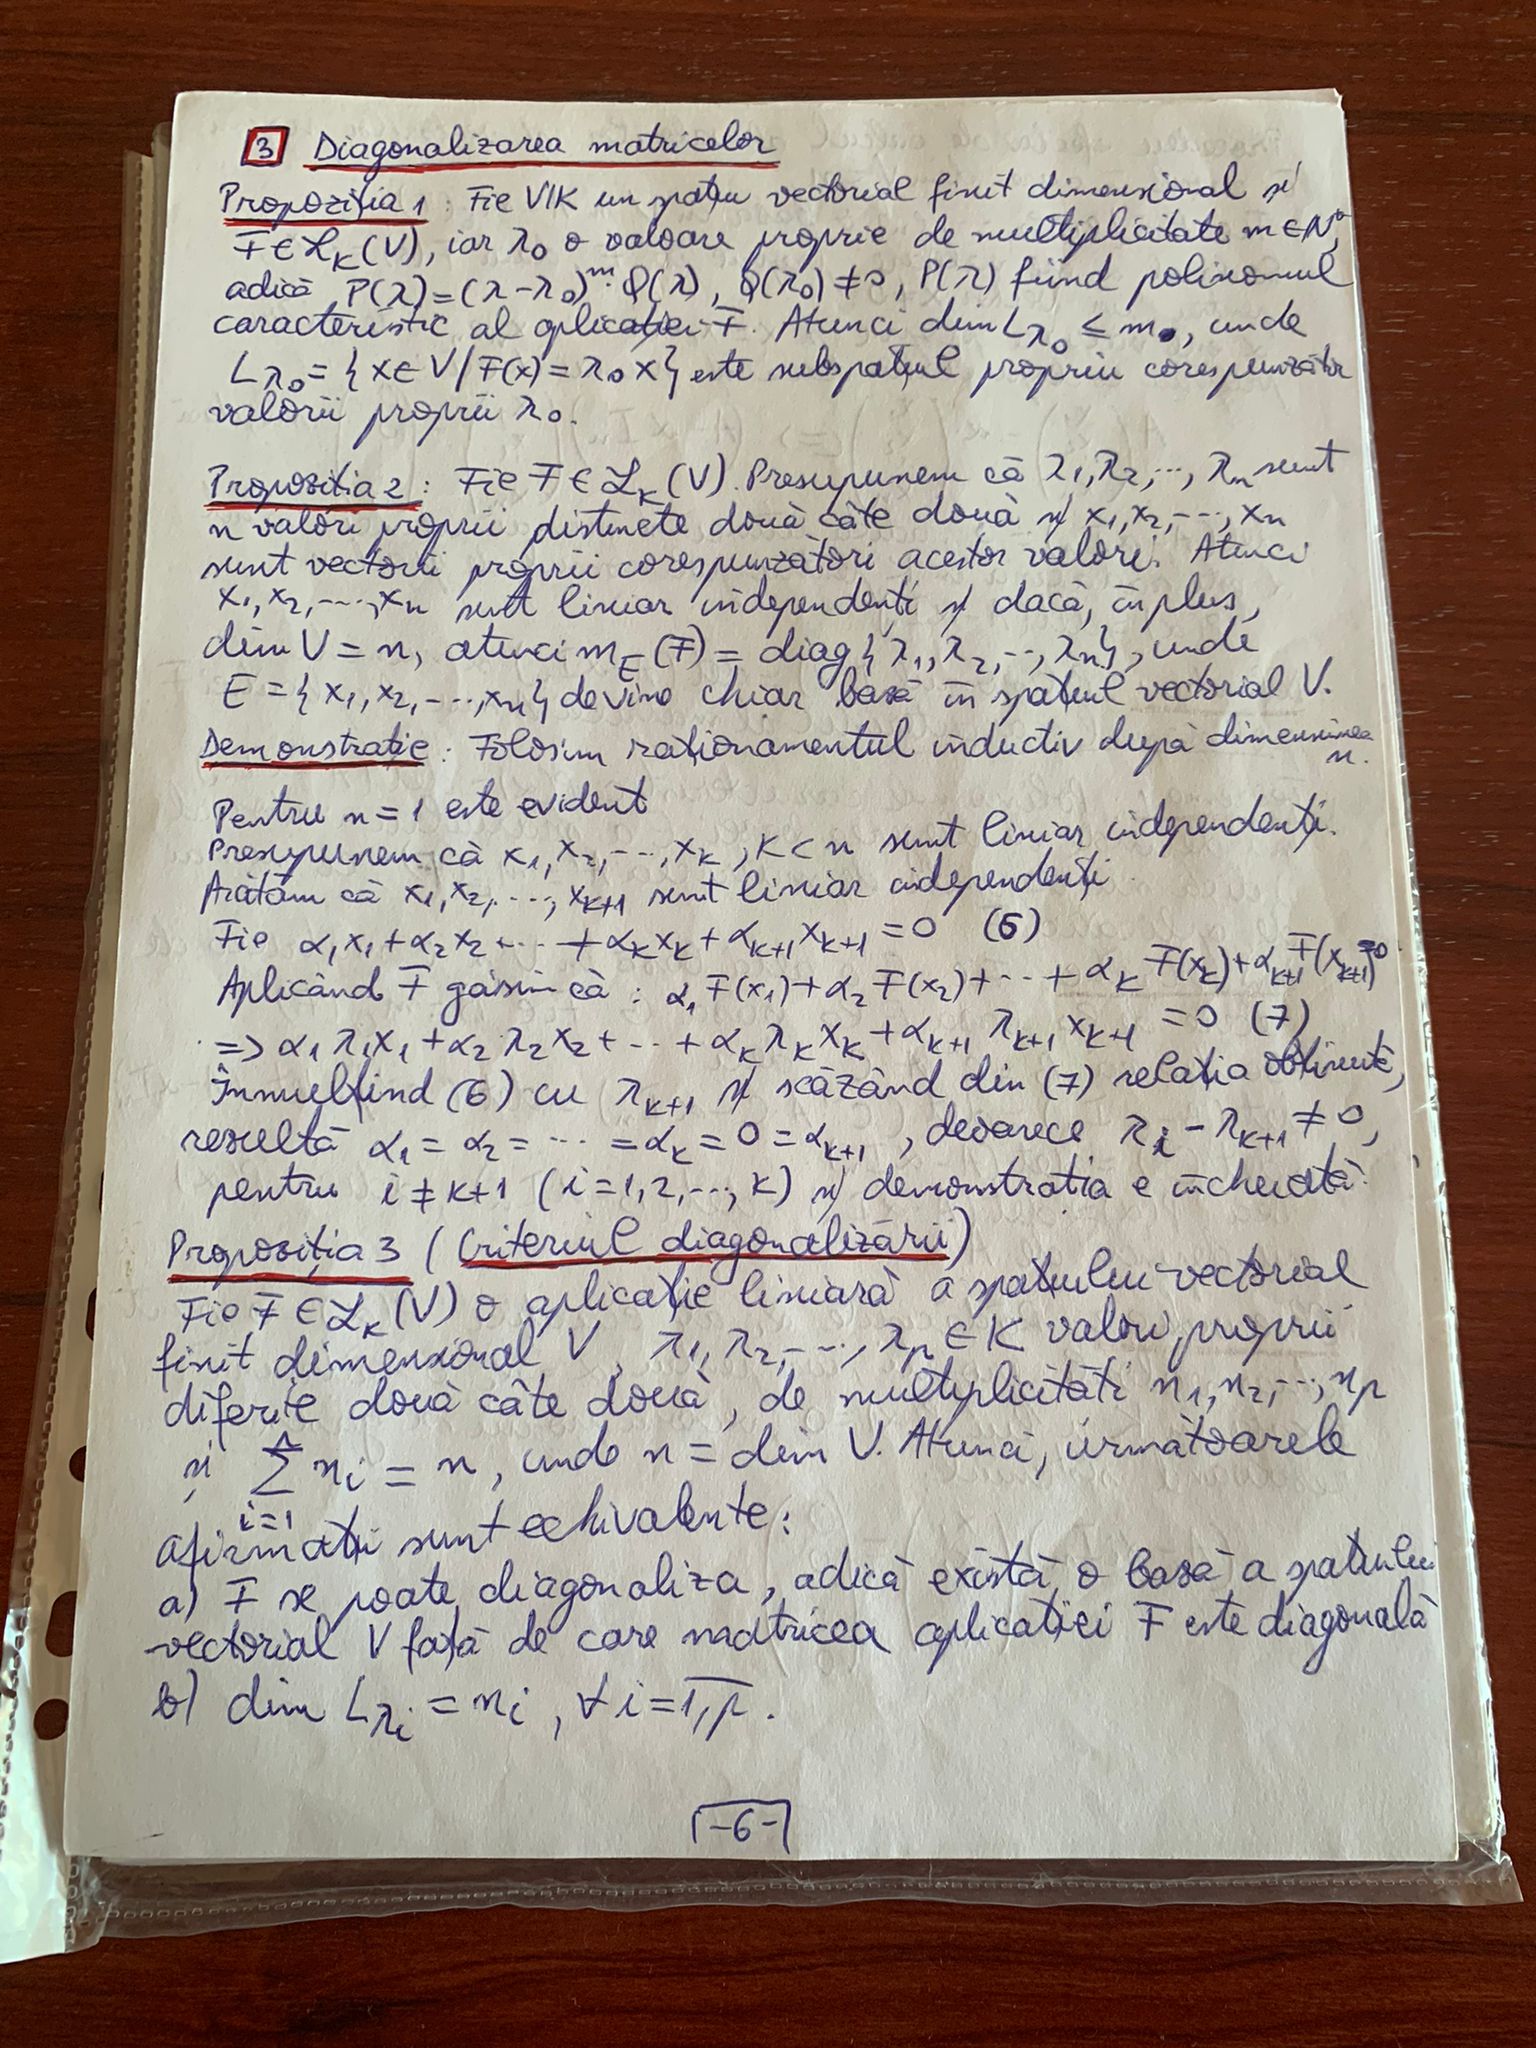 3 Diagonalizarea matricelor
Propoziția 1: Fie V/K un spațiu vectorial finit dimensional și
F∈ℒ_K(V), iar λ₀ o valoare proprie de multiplicitate m∈N*,
adică P(λ)=(λ-λ₀)^m·Q(λ), Q(λ₀)≠0, P(λ) fiind polinomul
caracteristic al aplicației F. Atunci dim L_λ₀ ≤ m, unde
L_λ₀ = {x∈V/F(x)=λ₀x} este subspațiul propriu corespunzător
valorii proprii λ₀.
Propoziția 2: Fie F∈ℒ_K(V). Presupunem că λ₁,λ₂,…,λₙ sunt
n valori proprii distincte două câte două și x₁,x₂,…,xₙ
sunt vectorii proprii corespunzători acestor valori. Atunci
x₁,x₂,…,xₙ sunt liniar independenți și dacă, în plus,
dim V=n, atunci m_E(F)=diag{λ₁,λ₂,…,λₙ}, unde
E={x₁,x₂,…,xₙ} devine chiar bază în spațiul vectorial V.
Demonstrație: Folosim raționamentul inductiv după dimensiunea
n.
Pentru n=1 este evident
Presupunem că x₁,x₂,…,x_k, k<n sunt liniar independenți.
Arătăm că x₁,x₂,…,x_{k+1} sunt liniar independenți.
Fie α₁x₁+α₂x₂+…+α_kx_k+α_{k+1}x_{k+1}=0 (6)
Aplicând F găsim că: α₁F(x₁)+α₂F(x₂)+…+α_kF(x_k)+α_{k+1}F(x_{k+1})=0
=> α₁λ₁x₁+α₂λ₂x₂+…+α_kλ_kx_k+α_{k+1}λ_{k+1}x_{k+1}=0 (7)
Înmulțind (6) cu λ_{k+1} și scăzând din (7) relația obținută,
rezultă α₁=α₂=…=α_k=0=α_{k+1}, deoarece λ_i-λ_{k+1}≠0,
pentru i≠k+1 (i=1,2,…,k) și demonstrația e încheiată.
Propoziția 3 (Criteriul diagonalizării)
Fie F∈ℒ_K(V) o aplicație liniară a spațiului vectorial
finit dimensional V, λ₁,λ₂,…,λ_p∈K valori proprii
diferite două câte două, de multiplicități n₁,n₂,…,n_p
și ∑_{i=1}^{p} n_i=n, unde n=dim V. Atunci, următoarele
afirmații sunt echivalente:
a) F se poate diagonaliza, adică există o bază a spațiului
vectorial V față de care matricea aplicației F este diagonală
b) dim L_λi=n_i, ∀ i=1,p.
-6-